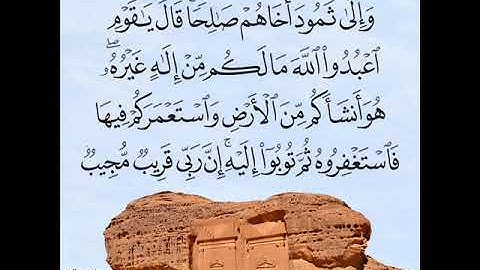 وَإِلَىٰ ثَمُودَ أَخَاهُمْ صَٰلِحًا ۚ قَالَ يَٰقَوْمِ
ٱعْبُدُوا۟ ٱللَّهَ مَا لَكُم مِّنْ إِلَٰهٍ غَيْرُهُۥ ۖ
هُوَ أَنشَأَكُم مِّنَ ٱلْأَرْضِ وَٱسْتَعْمَرَكُمْ فِيهَا
فَٱسْتَغْفِرُوهُ ثُمَّ تُوبُوٓا۟ إِلَيْهِ ۚ إِنَّ رَبِّى قَرِيبٌ مُّجِيبٌ